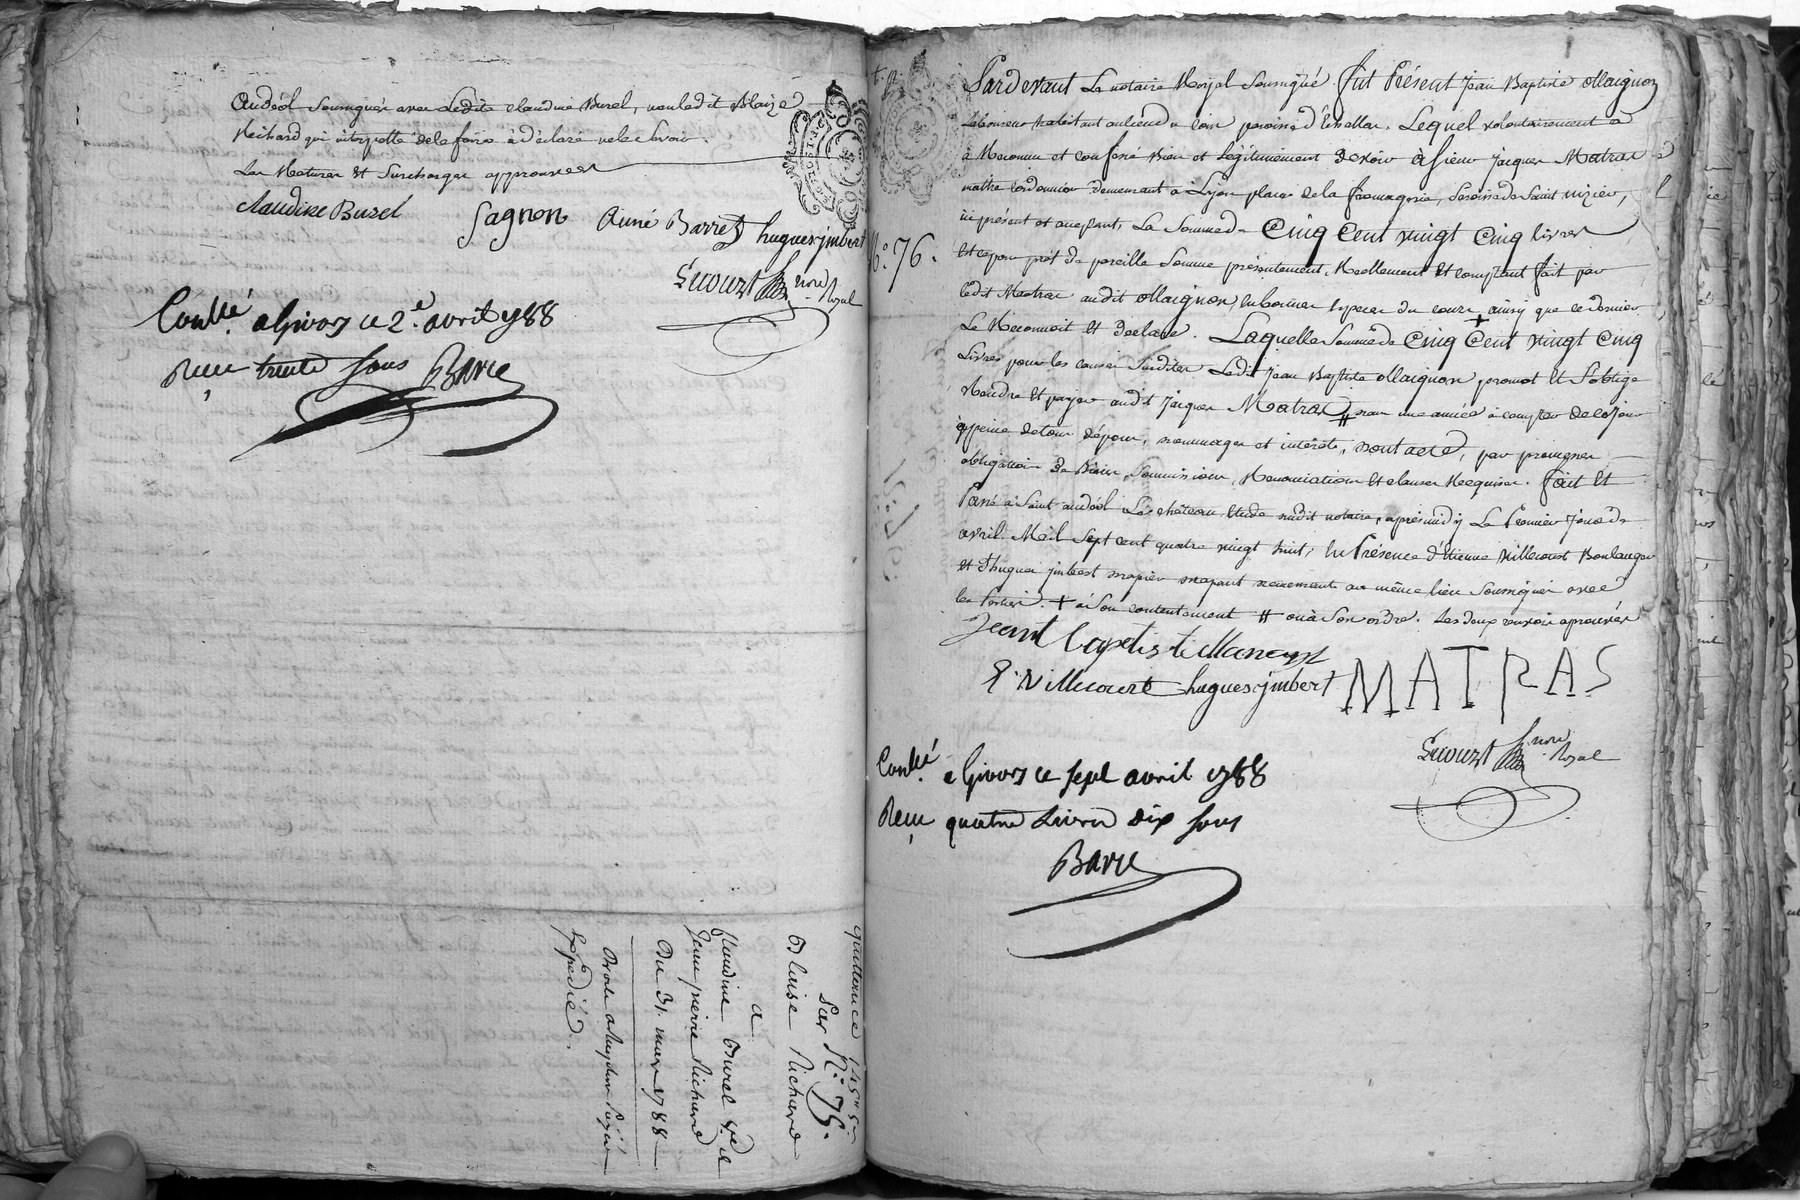 andéol soussignés avec Ladite claudine Burel, non ledit Blaize
Richard qui interpellé de le faire à déclaré ne le savoir.
Les Ratures Et Surcharges approuvées
claudine Burel
Gagnon
Aimé Barret
hugues jmbert
Lecourt nore Royal
Conllé a Givors ce 2e avril 1788
Reçu trente sous Barre
quittance 145# 5s
par N.° 75.
Blaise Richard
a
Claudine Burel ve de
Jean pierre Richard
Du 31. mars 1788
Expedié.
N.° 76.
Pardevant Le notaire Royal Soussigné fut Présent Jean Baptiste Maignon
Laboureur habitant au lieu de paroisse d'Echallas. Lequel volontairement a
à Reconnu et confessé Bien et Légitimement devoir à Sieur Jacques Matras
maitre Cordonnier demeurant à Lyon place de la fromagerie, paroisse de Saint nizier,
ici présent et acceptant, La Somme de Cinq Cent vingt Cinq livres
Et ce pour prêt de pareille Somme présentement, Réellement et comptant fait par
ledit Matras audit Maignon, en bonnes Especes du cours + ainsy que ce dernier
Le Reconnoit Et declare. Laquelle Somme de Cinq Cent vingt Cinq
Livres pour les causes Susdites Ledit Jean Baptiste Maignon promet Et S'oblige
Rendre Et payer audit Jacques Matras # dans une année à compter de ce jour
à peine de tous dépens, dommages et intérêts, dont acte, par promesses
obligation de Biens, Soumissions, Renonciations Et clauses Requises. fait Et
Passé à Saint andéol Le château Etude dudit notaire, aprés midy Le Premier Jour de
avril Mil Sept cent quatre vingt huit, En Présence d'Etienne Villecourt Boulanger
et d'hugues jmbert papier demeurants au même lieu Soussignés avec
les Parties. + à Son contentement # ou à Son ordre. Les deux renvois aprouvés
Jean Baptiste Manion
E. Villecourt
hugues jmbert
MATRAS
Lecourt nore Royal
Conllé a Givors ce sept avril 1788
Reçu quatre Livres dix sous
Barre